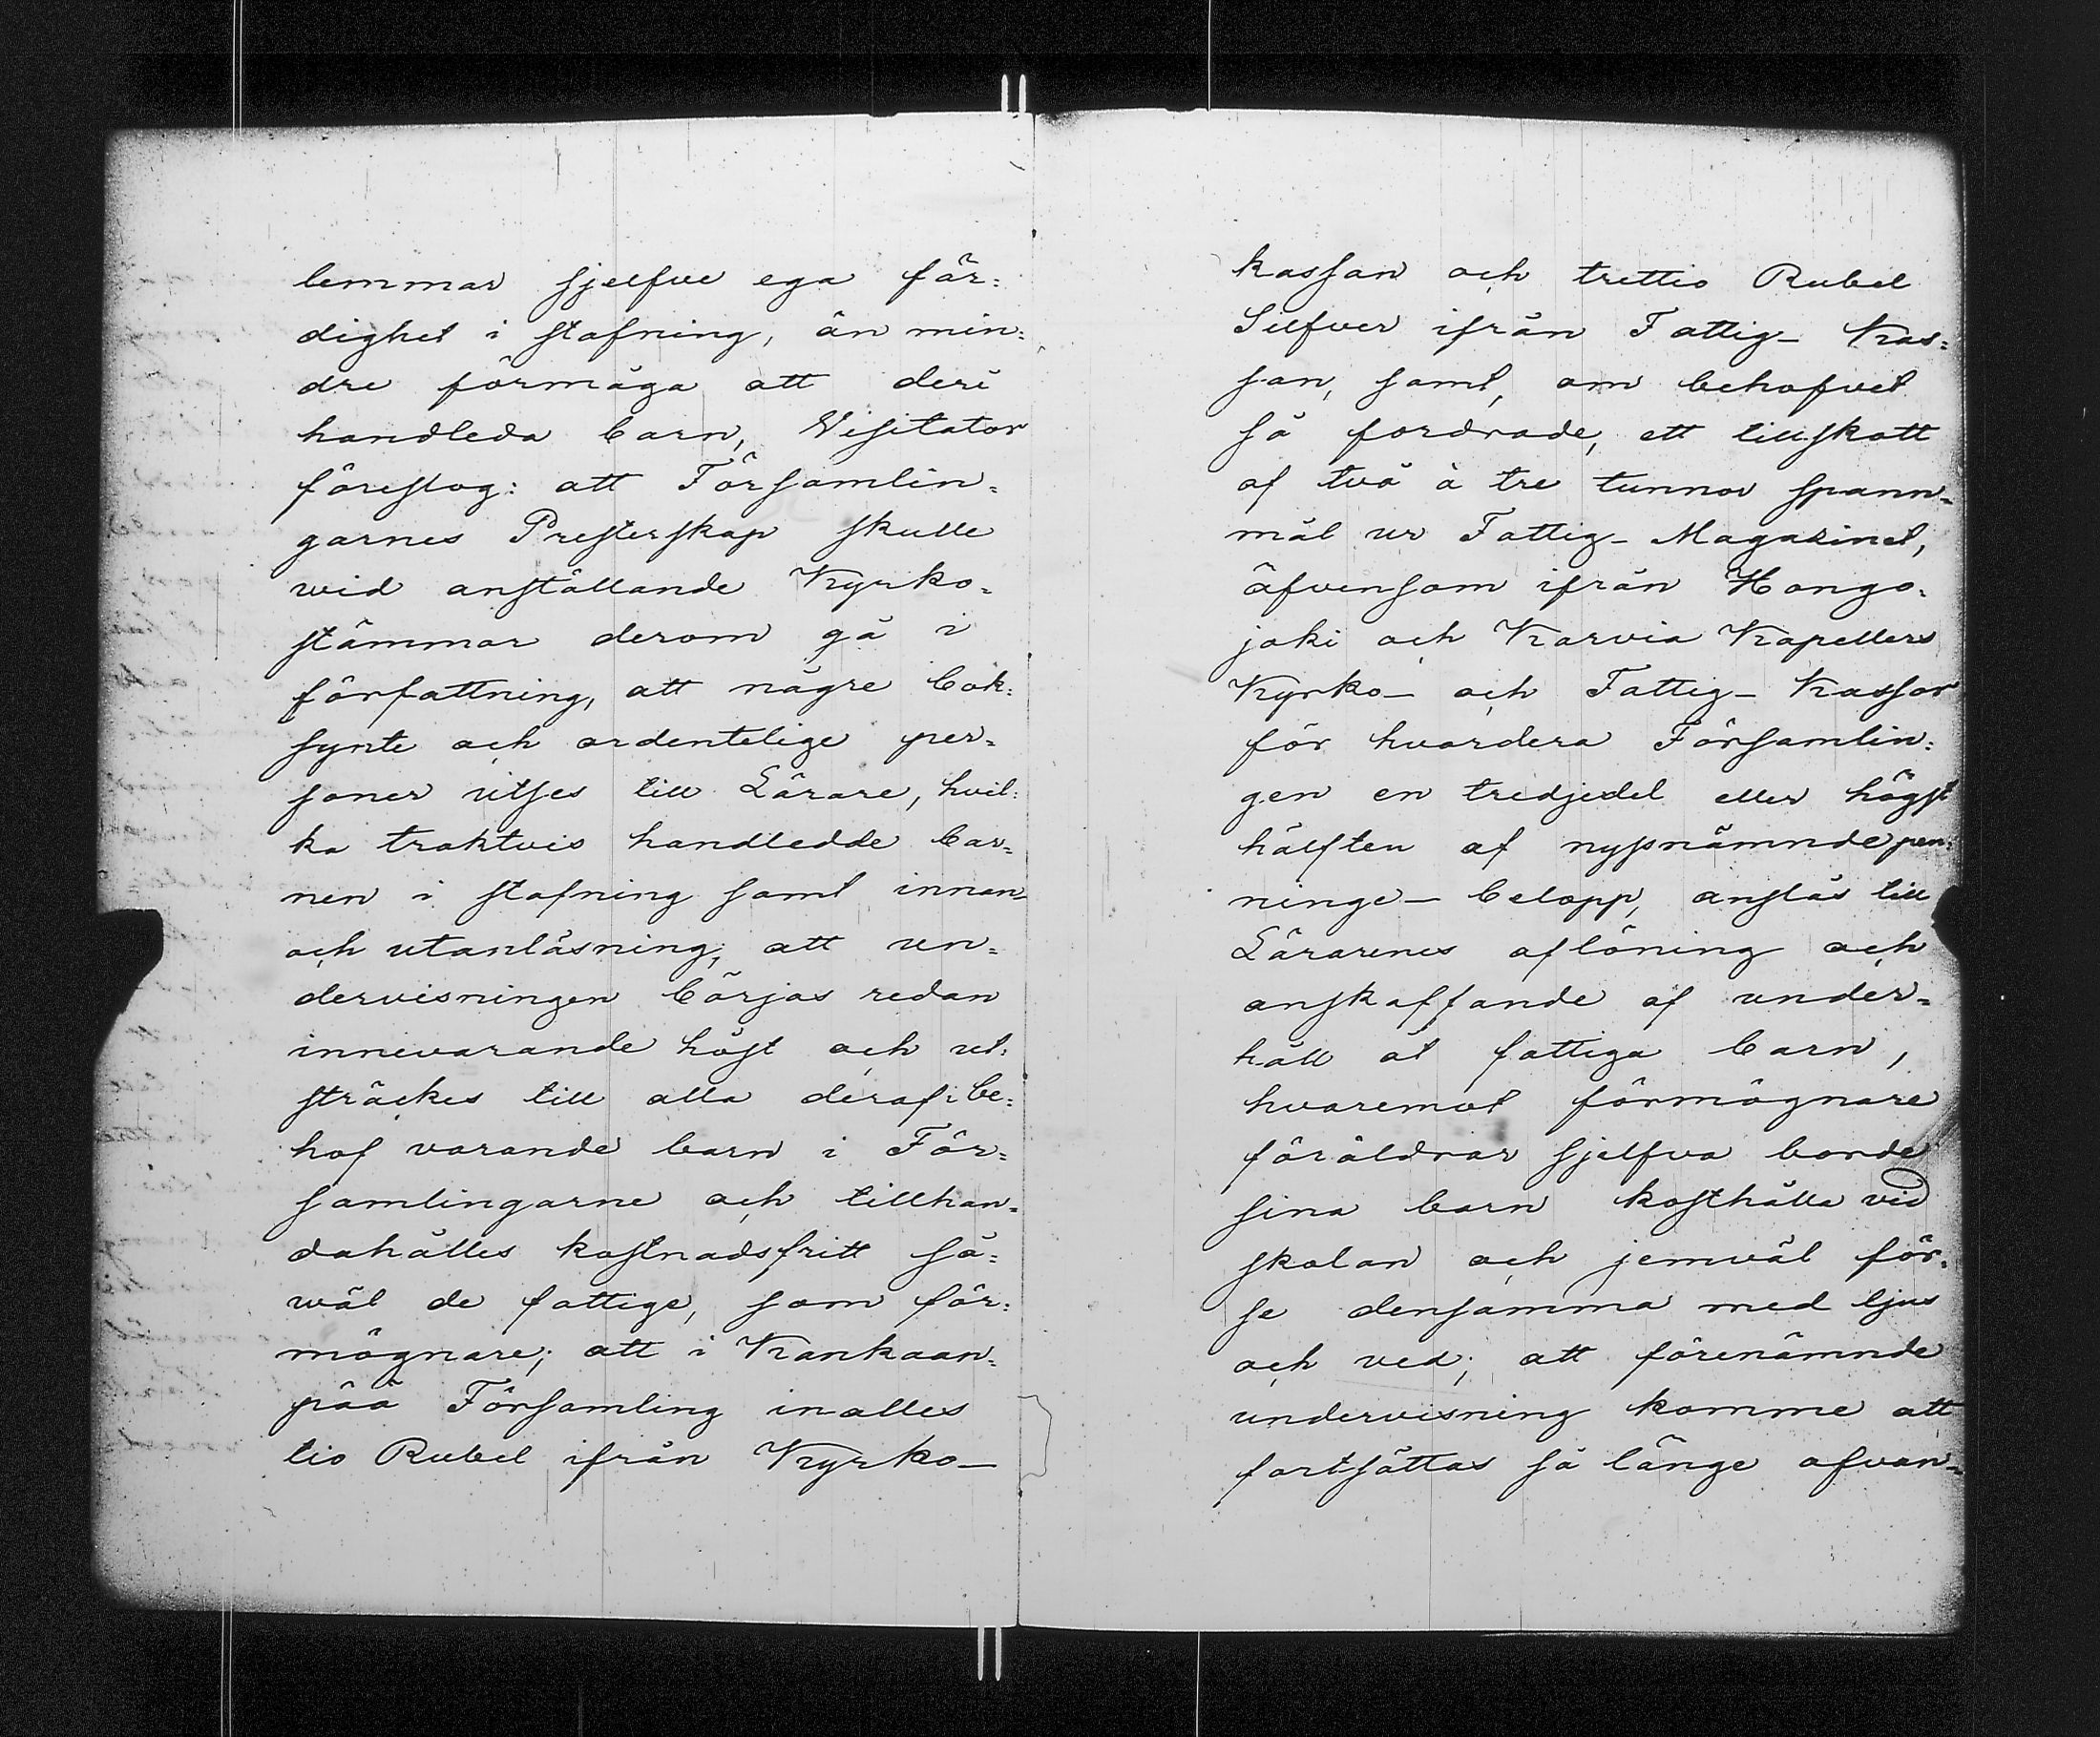 lemmar sjelfve ega fär=
dighet i stafning, än min=
dre förmåga att deri
handleda barn, Visitator
föreslog: att Församlin=
garnes Presterskap skulle
wid anställande Kyrko=
stämmar derom gå i
författning, att någre bok=
synte och ordentelige per=
soner utses till Lärare, hvil=
ka traktvis handledde bar=
nen i stafning samt innan=
och utanläsning; att un=
dervisningen börjas redan
innevarande höst och ut=
sträckes till alla deraf i be=
hof varande barn i För=
samlingarne och tillhan=
dahålles kostnadsfritt så=
wäl de fattige, som för=
mögnare; att i Kankaan=
pää Församling inalles
tio Rubel ifrån Kyrko-
kassan och trettio Rubel
Silfver ifrån Fattig- Kas=
san, samt, om behofvet
så fordrade, ett tillskott
af två à tre tunnor spann=
mål ur Fattig- Magazinet,
äfvensom ifrån Hongo=
joki och Karvia Kapellers
Kyrko- och Fattig- Kassor
för hvardera Församlin=
gen en tredjedel eller högst
hälften af nyssnämnde pen=
ninge- belopp, anslås till
Lärarenes aflöning och
anskaffande af under=
håll åt fattiga barn,
hvaremot förmögnare
föräldrar sjelfva borde
sina barn kosthålla vid
skolan och jemväl för=
se densamma med ljus
och ved; att förenämnde
undervisning komme att
fortsättas så länge ofvan=